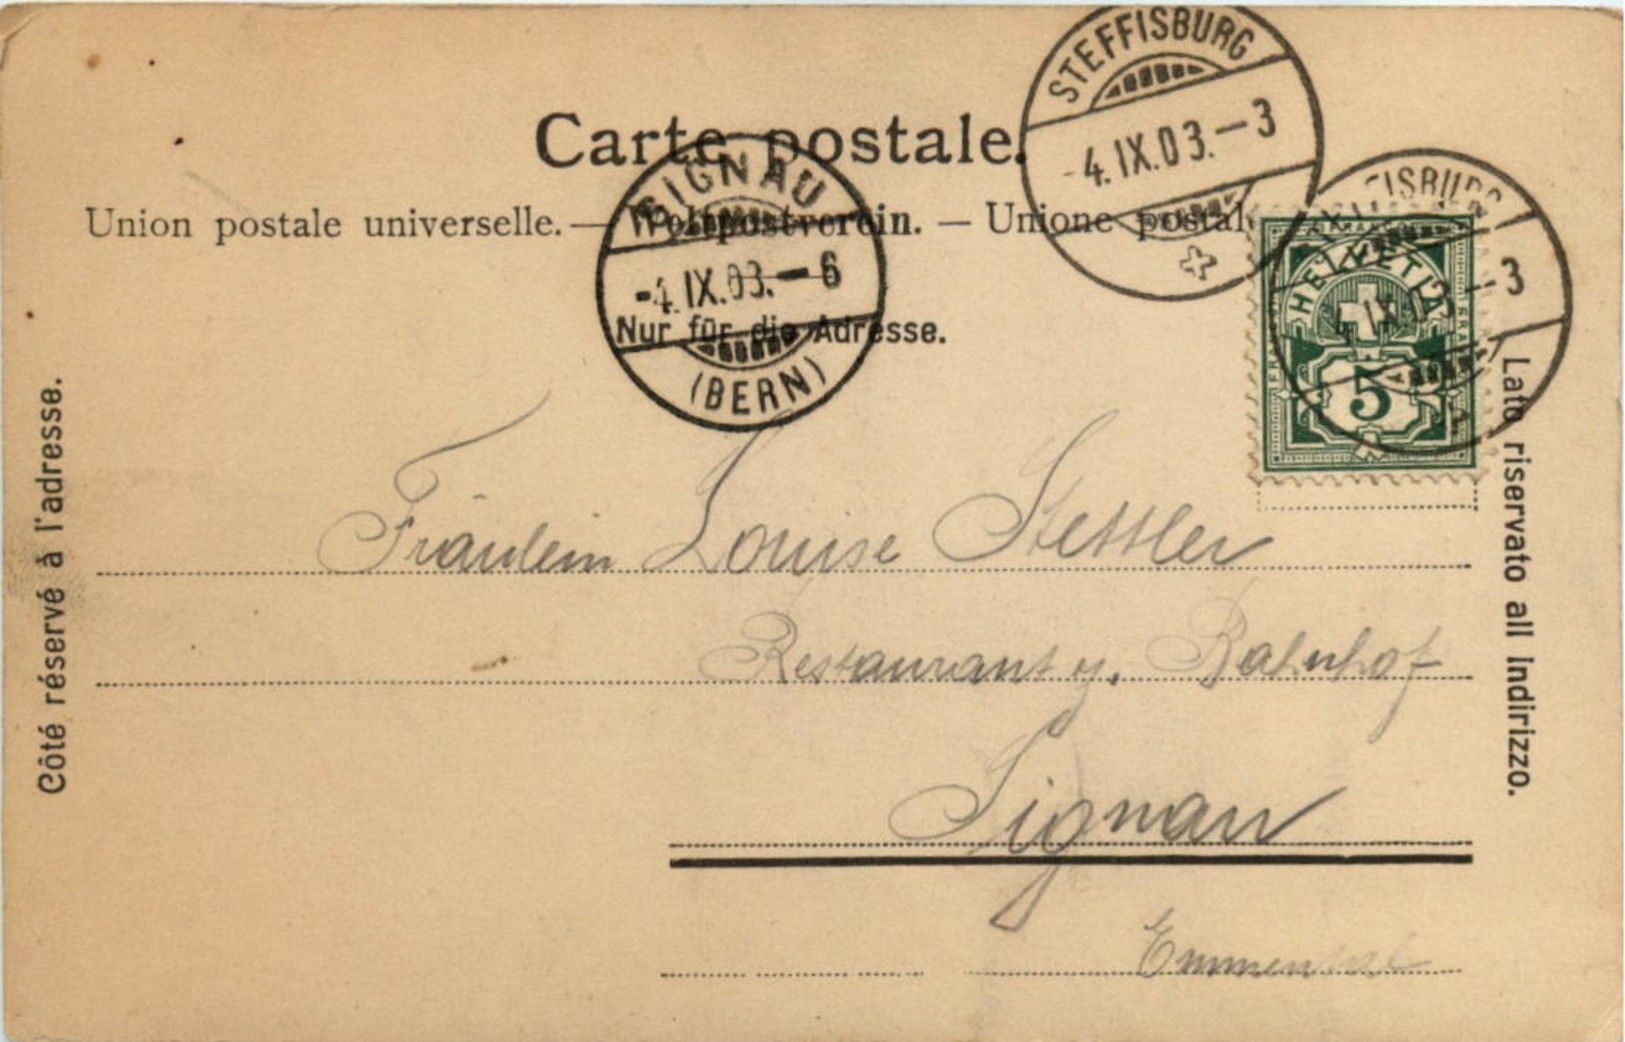 STEFFISBURG
-4.IX.03.-3
Carte postale.
Union postale universelle. — Weltpostverein. — Unione postal
SIGNAU
-4.IX.03.-6
(BERN)
Nur für die Adresse.
HELVETIA
5
IX.03.-3
Côté réservé à l'adresse.
Lato riservato all indirizzo.
Fräulein Louise Stettler
Restaurant z. Bahnhof
Signau
Emmenthal